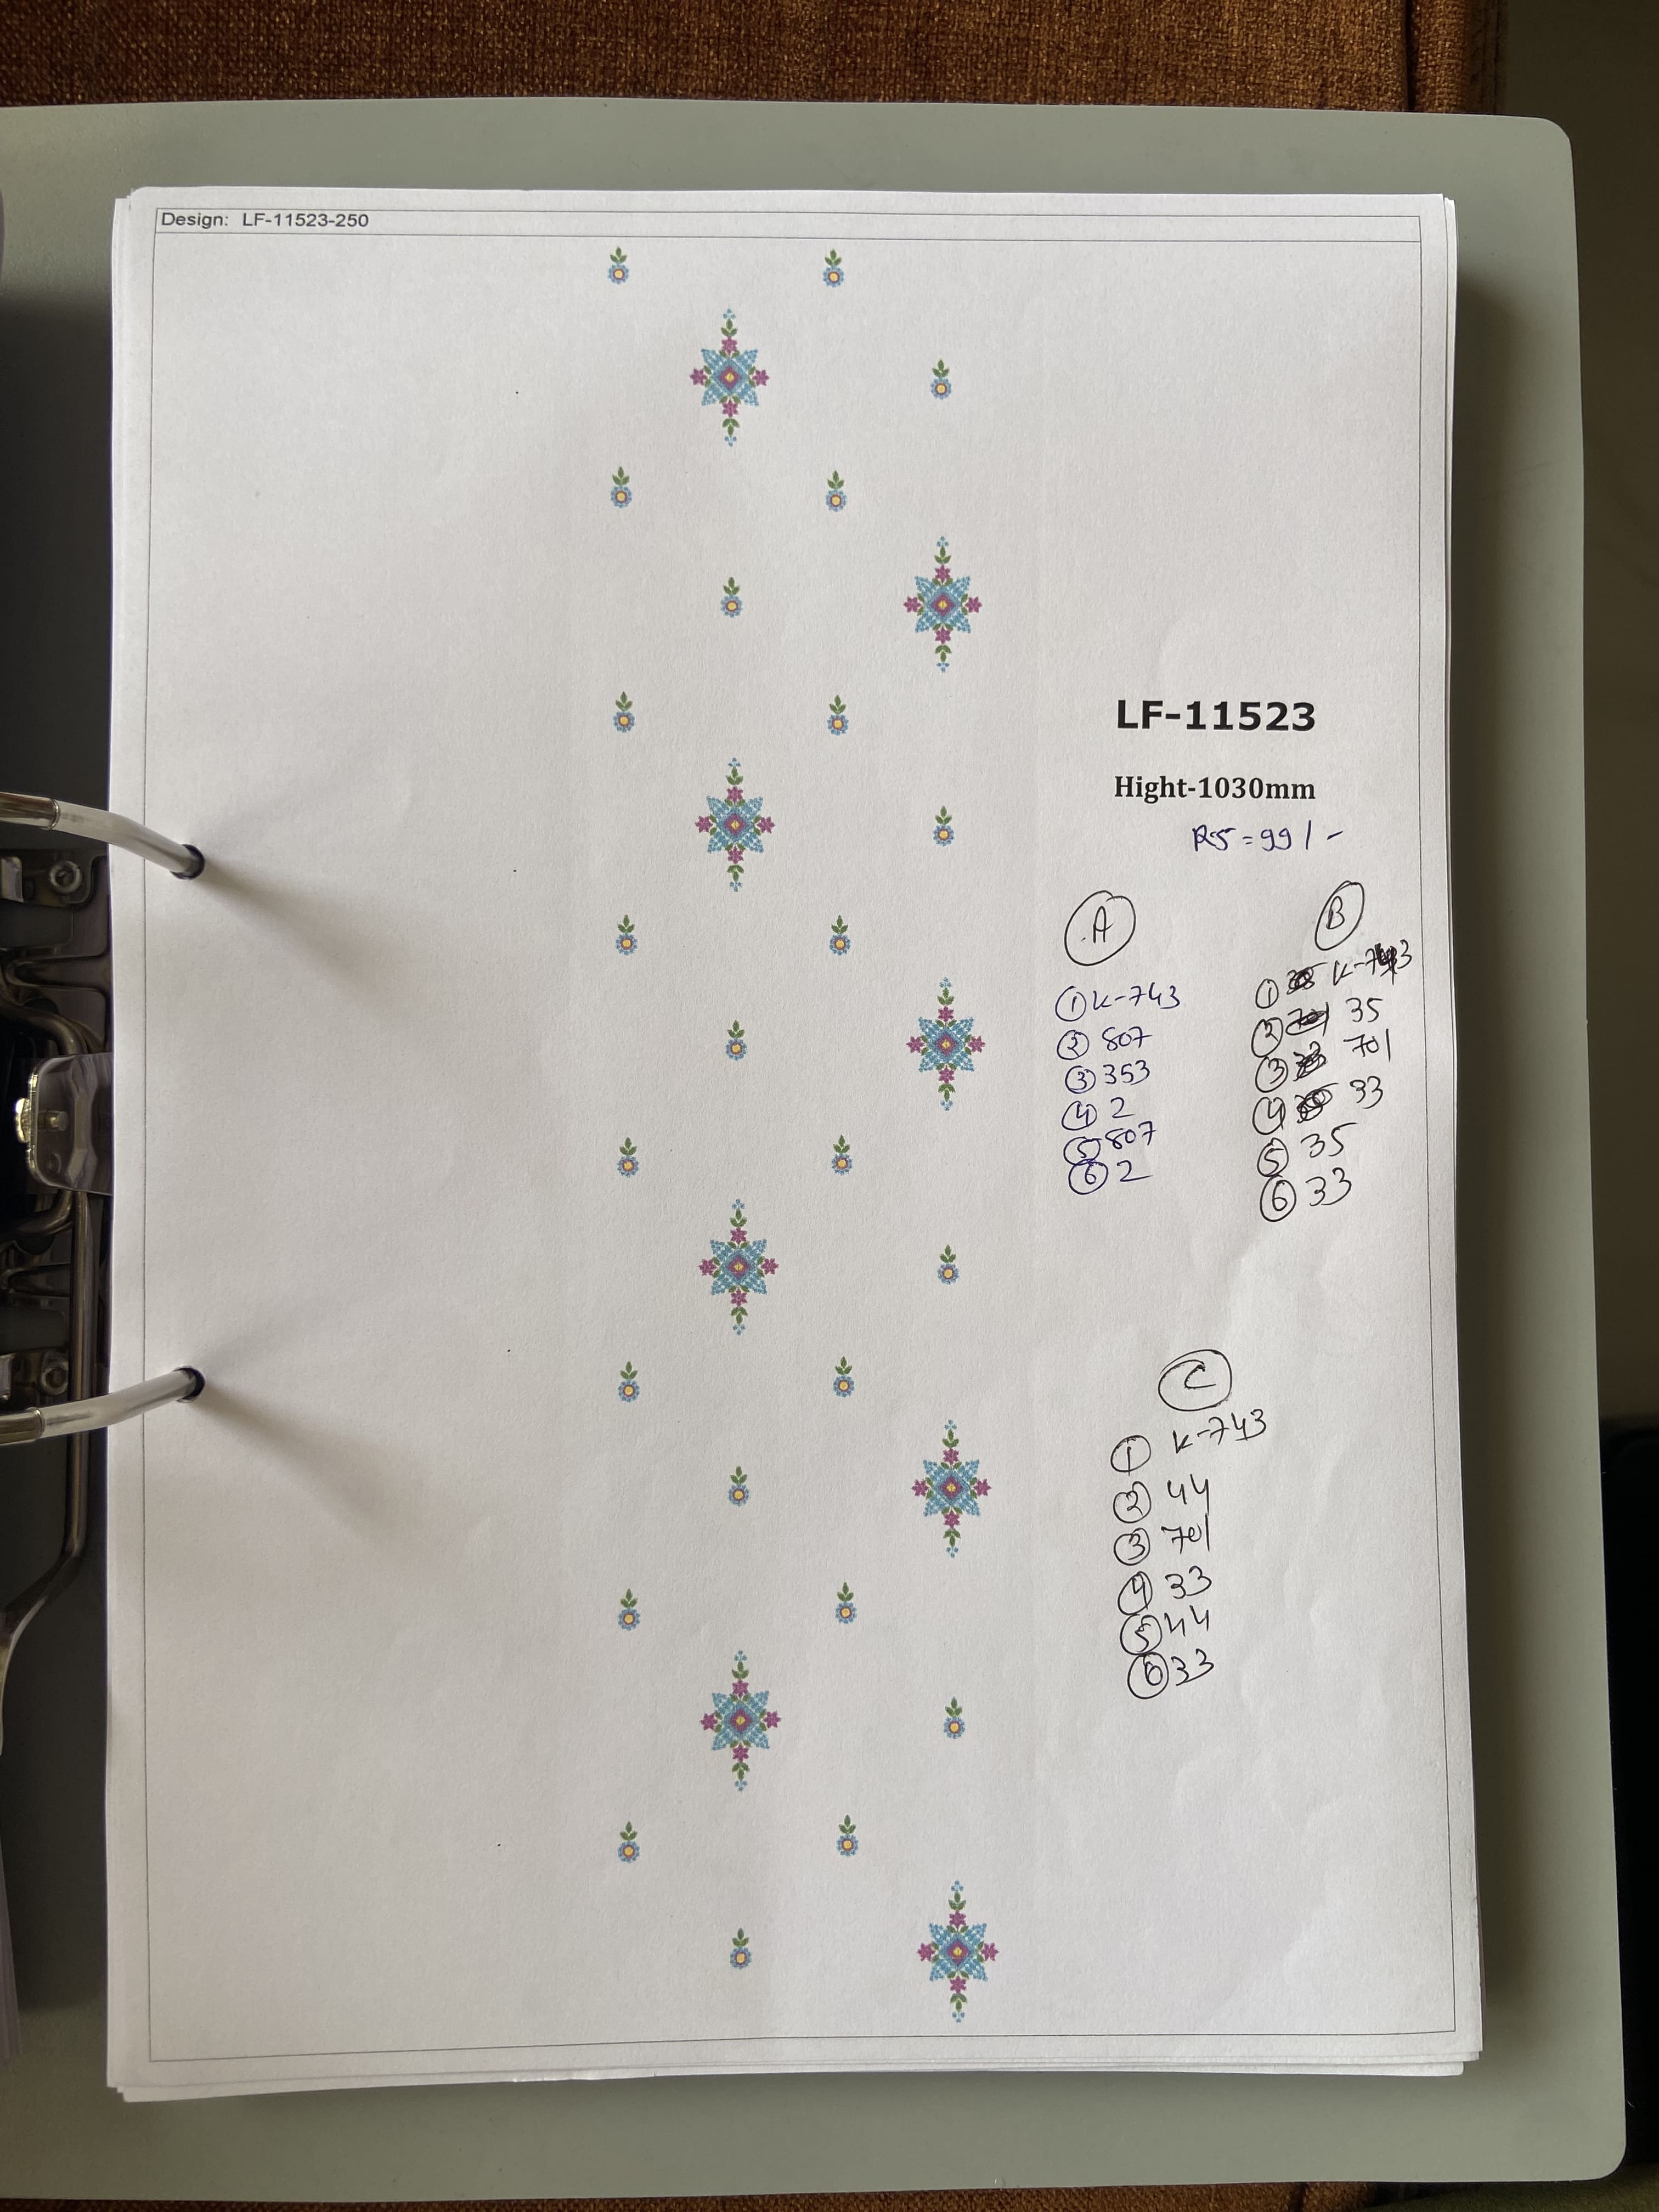 Design: LF-11523-250
LF-11523
Hight-1030mm
RS=99/-
A
① K-743
② 807
③ 353
④ 2
⑤ 807
⑥ 2
B
① K-743
② 35
③ 701
④ 33
⑤ 35
⑥ 33
C
① K-743
② 44
③ 701
④ 33
⑤ 44
⑥ 33